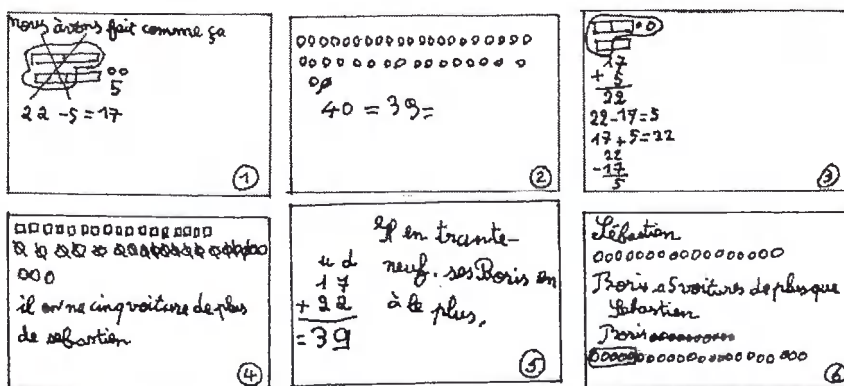 Nous avons fait comme ça
5
22 - 5 = 17
1
40 = 39 =
2
17
+ 5
22
22 - 17 = 5
17 + 5 = 22
22
- 17
5
3
il on ne cinq voiture de plus
de sebastien
4
Il en trante-
neuf. ses Boris en
à le plus.
u d
17
+ 22
= 39
5
Sébastien
Boris a 5 voitures de plus que
Sébastien
Boris
6